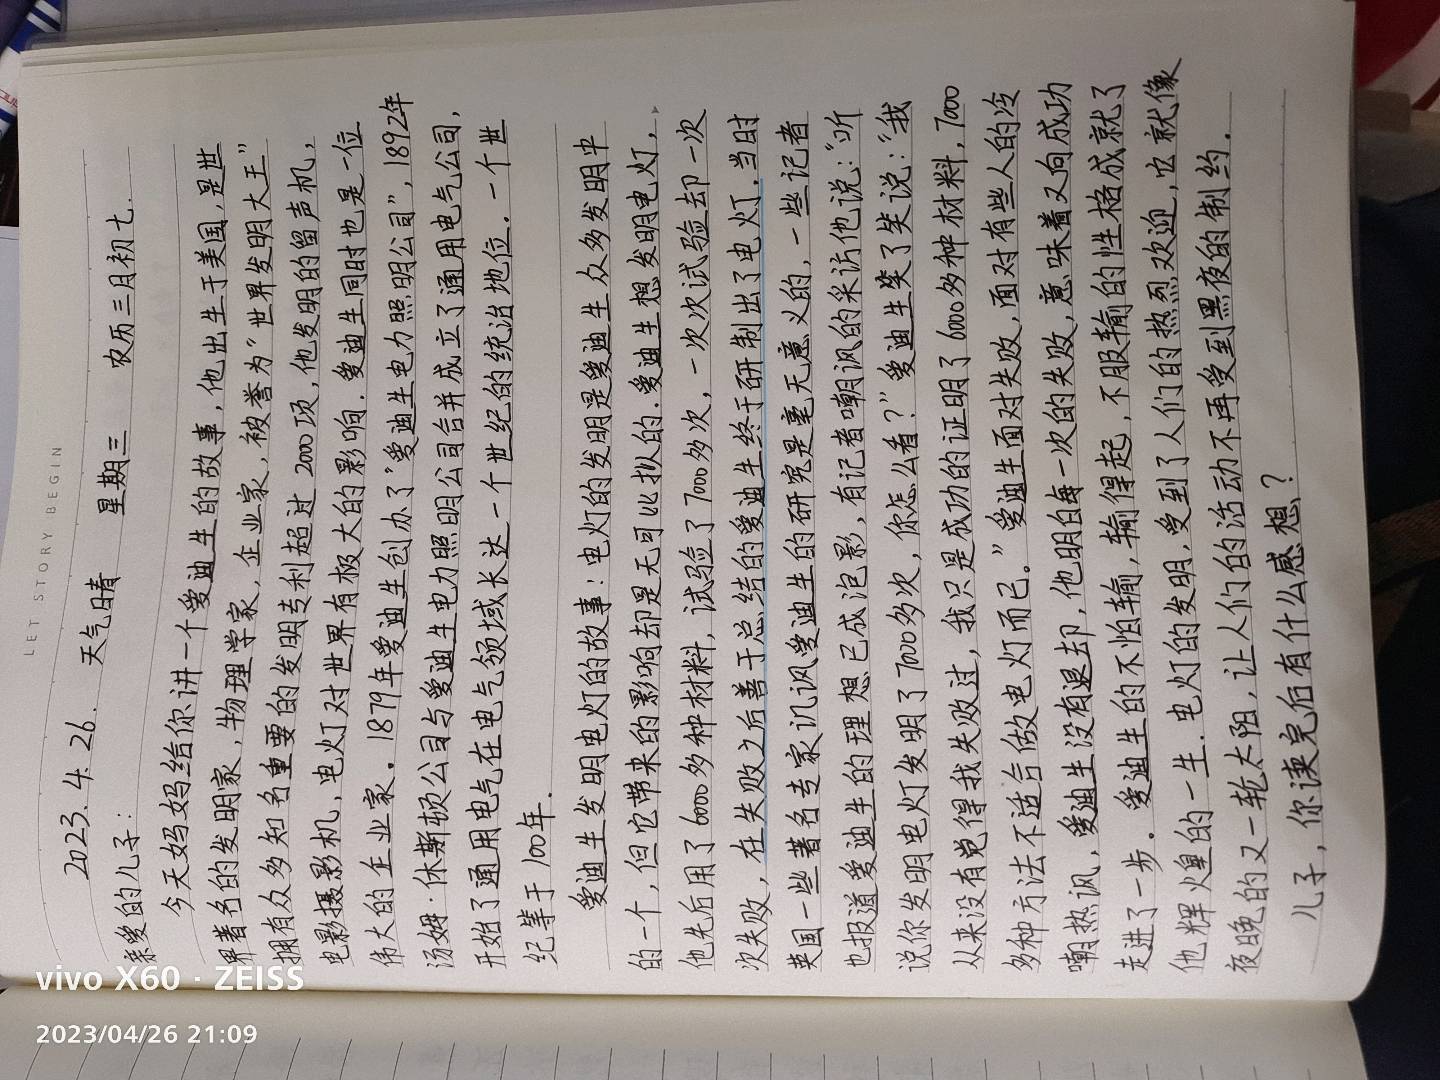 LET STORY BEGIN
2023.4.26. 天气晴 星期三 农历三月初七.
亲爱的儿子:
今天妈妈给你讲一个爱迪生的故事,他出生于美国,是世
界著名的发明家,物理学家,企业家,被誉为"世界发明大王"
拥有众多知名重要的发明专利超过2000项,他发明的留声机,
电影摄影机,电灯对世界有极大的影响.爱迪生同时也是一位
伟大的企业家.1879年爱迪生创办了"爱迪生电力照明公司",1892年
汤姆·休斯顿公司与爱迪生电力照明公司合并成立了通用电气公司,
开始了通用电气在电气领域长达一个世纪的统治地位.一个世
纪等于100年.
爱迪生发明电灯的故事:电灯的发明是爱迪生众多发明中
的一个,但它带来的影响却是无可比拟的.爱迪生想发明电灯,
他先后用了6000多种材料,试验了7000多次,一次次试验却一次
次失败,在失败之后善于总结的爱迪生终于研制出了电灯.当时
英国一些著名专家讥讽爱迪生的研究是毫无意义的,一些记者
也报道爱迪生的理想已成泡影,有记者嘲讽的采访他说:"听
说你发明电灯发明了7000多次,你怎么看?"爱迪生笑了笑说:"我
从来没有觉得我失败过,我只是成功的证明了6000多种材料,7000
多种方法不适合做电灯而已."爱迪生面对失败,面对有些人的冷
嘲热讽,爱迪生没有退却,他明白每一次的失败,意味着又向成功
走进了一步.爱迪生的不怕输,输得起,不服输的性格成就了
他辉煌的一生.电灯的发明,受到了人们的热烈欢迎,它就像
夜晚的又一轮太阳,让人们的活动不再受到黑夜的制约.
儿子,你读完后有什么感想?
vivo X60 · ZEISS
2023/04/26 21:09